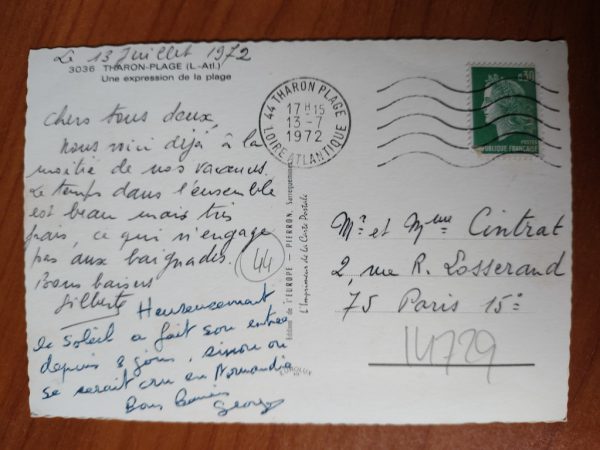 Le 13 Juillet 1972
3036 THARON-PLAGE (L-Atl.)
Une expression de la plage
Chers tous deux,
Nous voici déjà à la
moitié de nos vacances.
Le temps dans l'ensemble
est beau mais très
frais, ce qui n'engage
pas aux baignades.
Bons baisers
Gilberte
Heureusement
le soleil a fait son entrée
depuis 8 jours, sinon on
se serait cru en Normandie
Bons Baisers
Georges
44
44 THARON PLAGE
17 H 15
13 - 7
1972
LOIRE ATLANTIQUE
Editions de l'EUROPE - PIERRON, Sarreguemines
L'Imprimeur de la Carte Postale
0,30
POSTES
REPUBLIQUE FRANCAISE
Mr et Mme Cintrat
2, rue R. Losserand
75 Paris 15e
14729